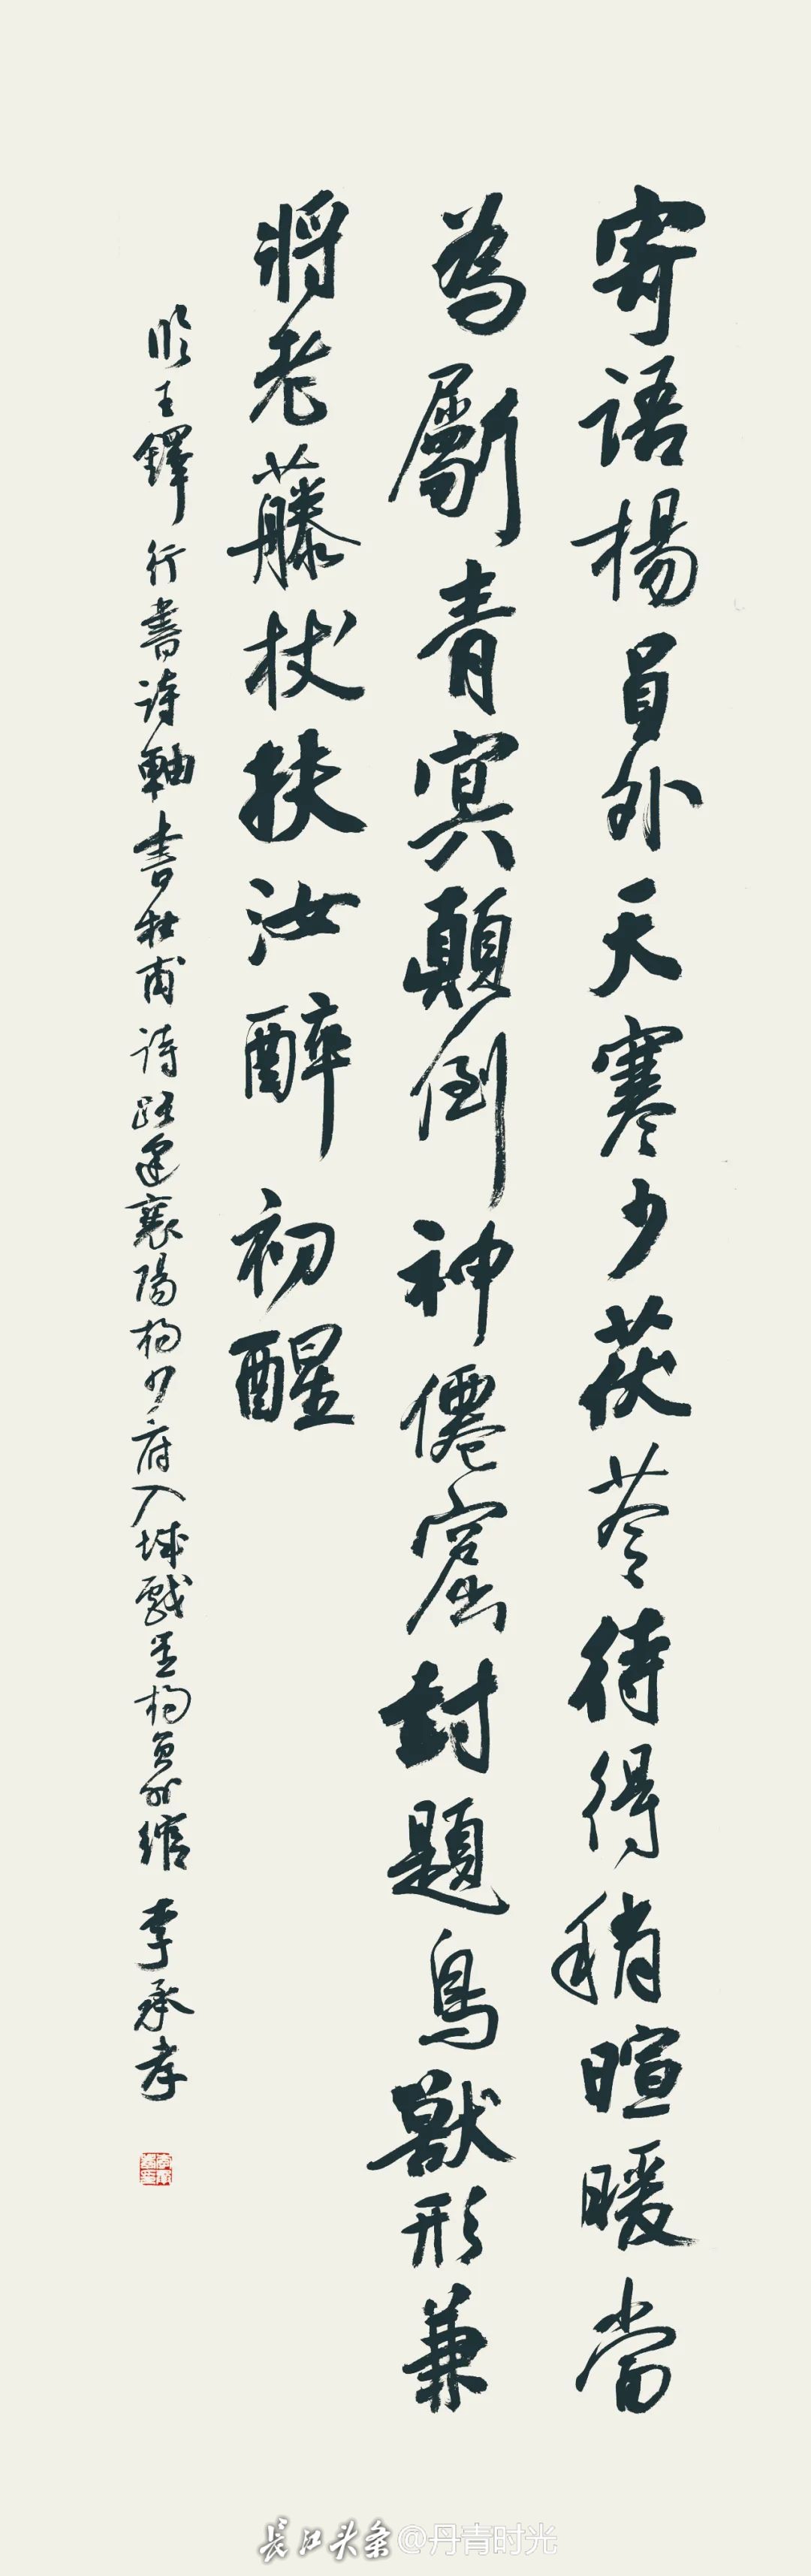 寄語楊員外天寒少茯苓待得稍暄暖當
為劚青冥顛倒神僊窟封題鳥獸形兼
將老藤杖扶汝醉初醒
臨王鐸行書詩軸書杜甫詩路逢襄陽楊少府入城戲呈楊員外綰 李承孝
長江头条@丹青时光